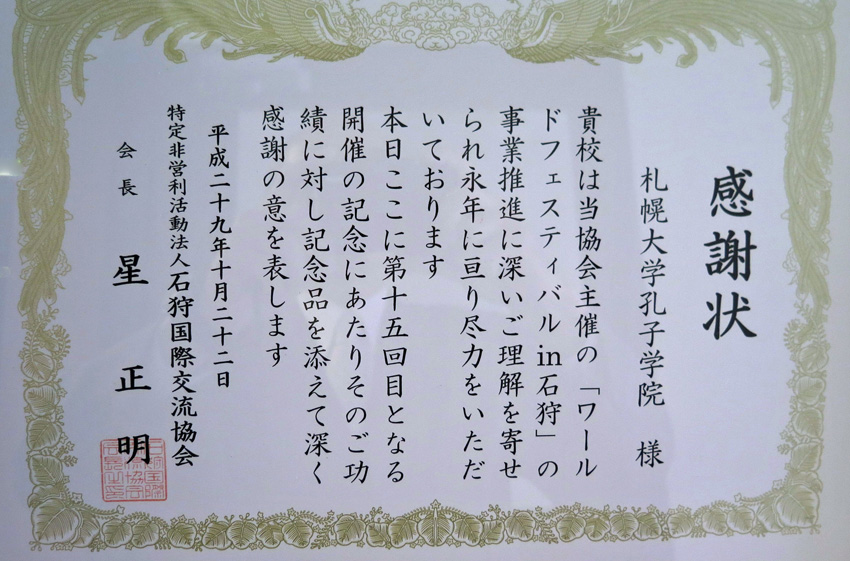 感謝状
札幌大学孔子学院 様
貴校は当協会主催の「ワール
ドフェスティバルin石狩」の
事業推進に深いご理解を寄せ
られ永年に亘り尽力をいただ
いております
本日ここに第十五回目となる
開催の記念にあたりそのご功
績に対し記念品を添えて深く
感謝の意を表します
平成二十九年十月二十二日
特定非営利活動法人石狩国際交流協会
会長 星 正明